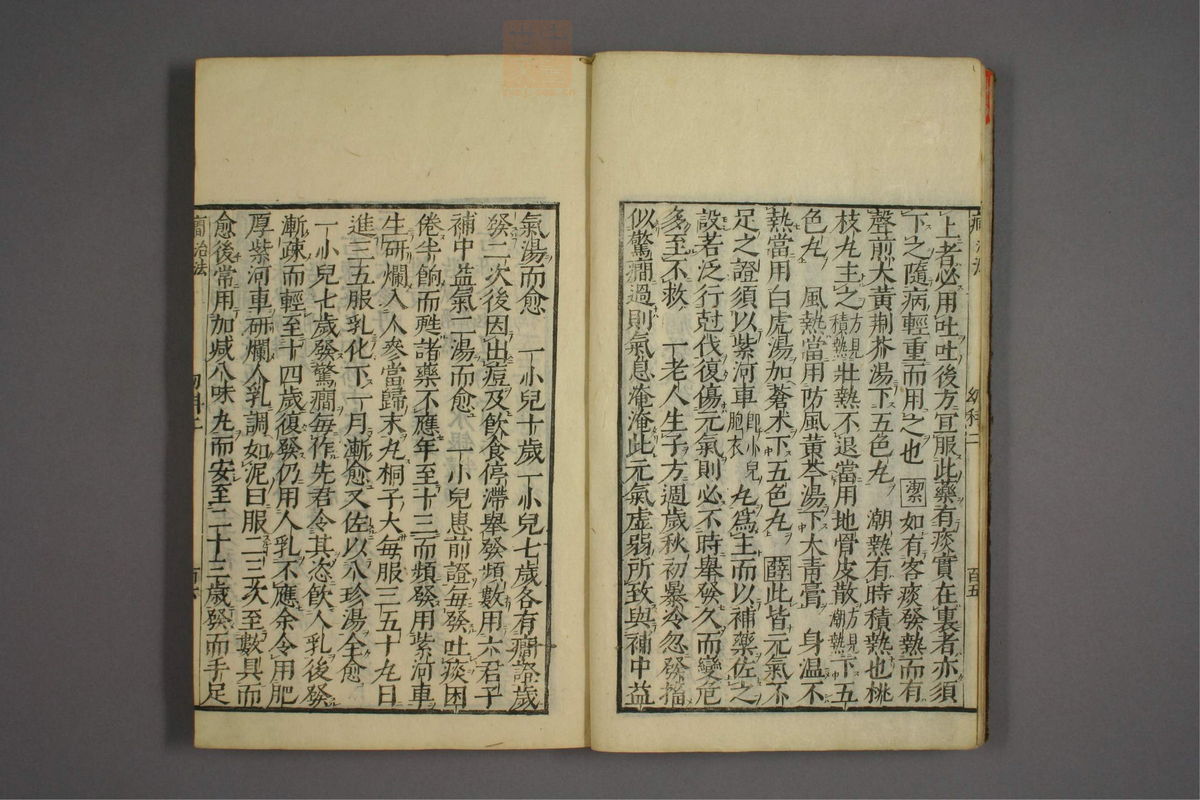 上者必用吐吐後方宜服此藥有痰實在裏者亦須
下之隨病輕重而用之也 潔 如有客痰發熱而有
聲煎大黃荊芥湯下五色丸 潮熱有時積熱也桃
枝丸主之方見積熱壯熱不退當用地骨皮散方見潮熱下五
色丸 風熱當用防風黃芩湯下大青膏 身温不
熱當用白虎湯加蒼朮下五色丸 薛 此皆元氣不
足之證須以紫河車即小兒胞衣丸爲主而以補藥佐之
設若泛行尅伐復傷元氣則必不時舉發久而變危
多至不救 一老人生子方週歲秋初暴冷忽發搐
似驚癇過則氣息淹淹此元氣虛弱所致與補中益
幼科二
百五
氣湯而愈 一小兒十歲一小兒七歲各有癇證歲
發二次後因出痘及飲食停滯舉發頻數用六君子
補中益氣二湯而愈 一小兒患前證每發吐痰困
倦半餉而甦諸藥不應年至十三而頻發用紫河車
生研爛入人參當歸末丸桐子大每服三五十丸日
進三五服乳化下一月漸愈又佐以八珍湯全愈
一小兒七歲發驚癇每作先君令其恣飲人乳後發
漸疎而輕至十四歲復發仍用人乳不應余令用肥
厚紫河車研爛人乳調如泥日服二三次至數具而
愈後常用加减八味丸而安至二十三歲發而手足
癇治法